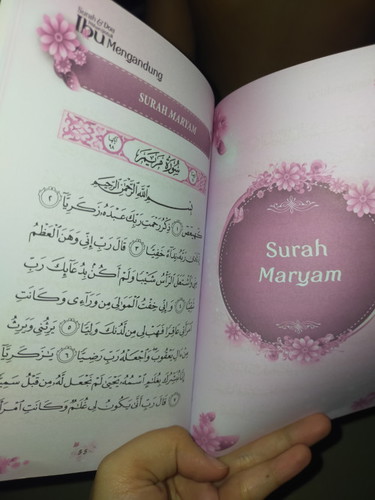 Surah & Doa
Ibu Mengandung
SURAH MARYAM
سُورَةُ مَرْيَمَ
بِسْمِ اللَّهِ الرَّحْمَٰنِ الرَّحِيمِ
كٓهيعٓصٓ ﴿١﴾ ذِكْرُ رَحْمَتِ رَبِّكَ عَبْدَهُۥ زَكَرِيَّآ ﴿٢﴾
رَبَّهُۥ نِدَآءً خَفِيًّا ﴿٣﴾ قَالَ رَبِّ إِنِّى وَهَنَ ٱلْعَظْمُ
مِنِّى وَٱشْتَعَلَ ٱلرَّأْسُ شَيْبًا وَلَمْ أَكُنۢ بِدُعَآئِكَ رَبِّ
شَقِيًّا ﴿٤﴾ وَإِنِّى خِفْتُ ٱلْمَوَٰلِىَ مِن وَرَآءِى وَكَانَتِ
ٱمْرَأَتِى عَاقِرًا فَهَبْ لِى مِن لَّدُنكَ وَلِيًّا ﴿٥﴾ يَرِثُنِى وَيَرِثُ
مِنْ ءَالِ يَعْقُوبَ وَٱجْعَلْهُ رَبِّ رَضِيًّا ﴿٦﴾ يَٰزَكَرِيَّآ
إِنَّا نُبَشِّرُكَ بِغُلَٰمٍ ٱسْمُهُۥ يَحْيَىٰ لَمْ نَجْعَل لَّهُۥ مِن قَبْلُ سَمِيًّا
﴿٧﴾ قَالَ رَبِّ أَنَّىٰ يَكُونُ لِى غُلَٰمٌ وَكَانَتِ ٱمْرَأَ
Surah
Maryam